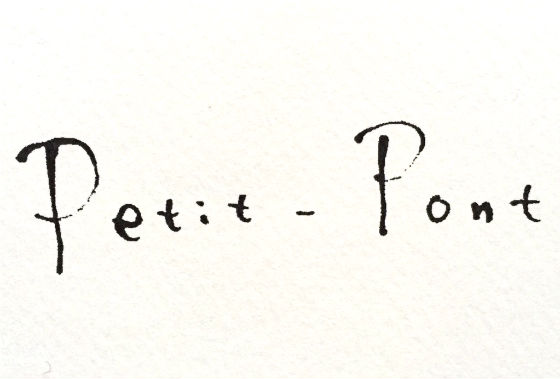 Petit - Pont